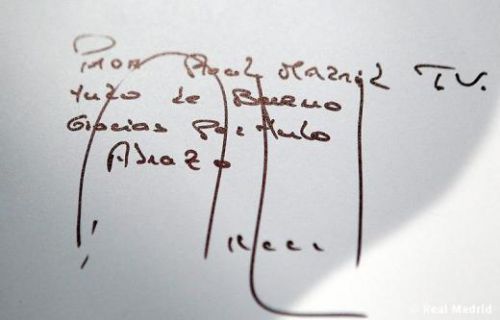 Real Madrid TV.
tudo de Bueno
Gracias Por tudo
Abrazo
© Real Madrid